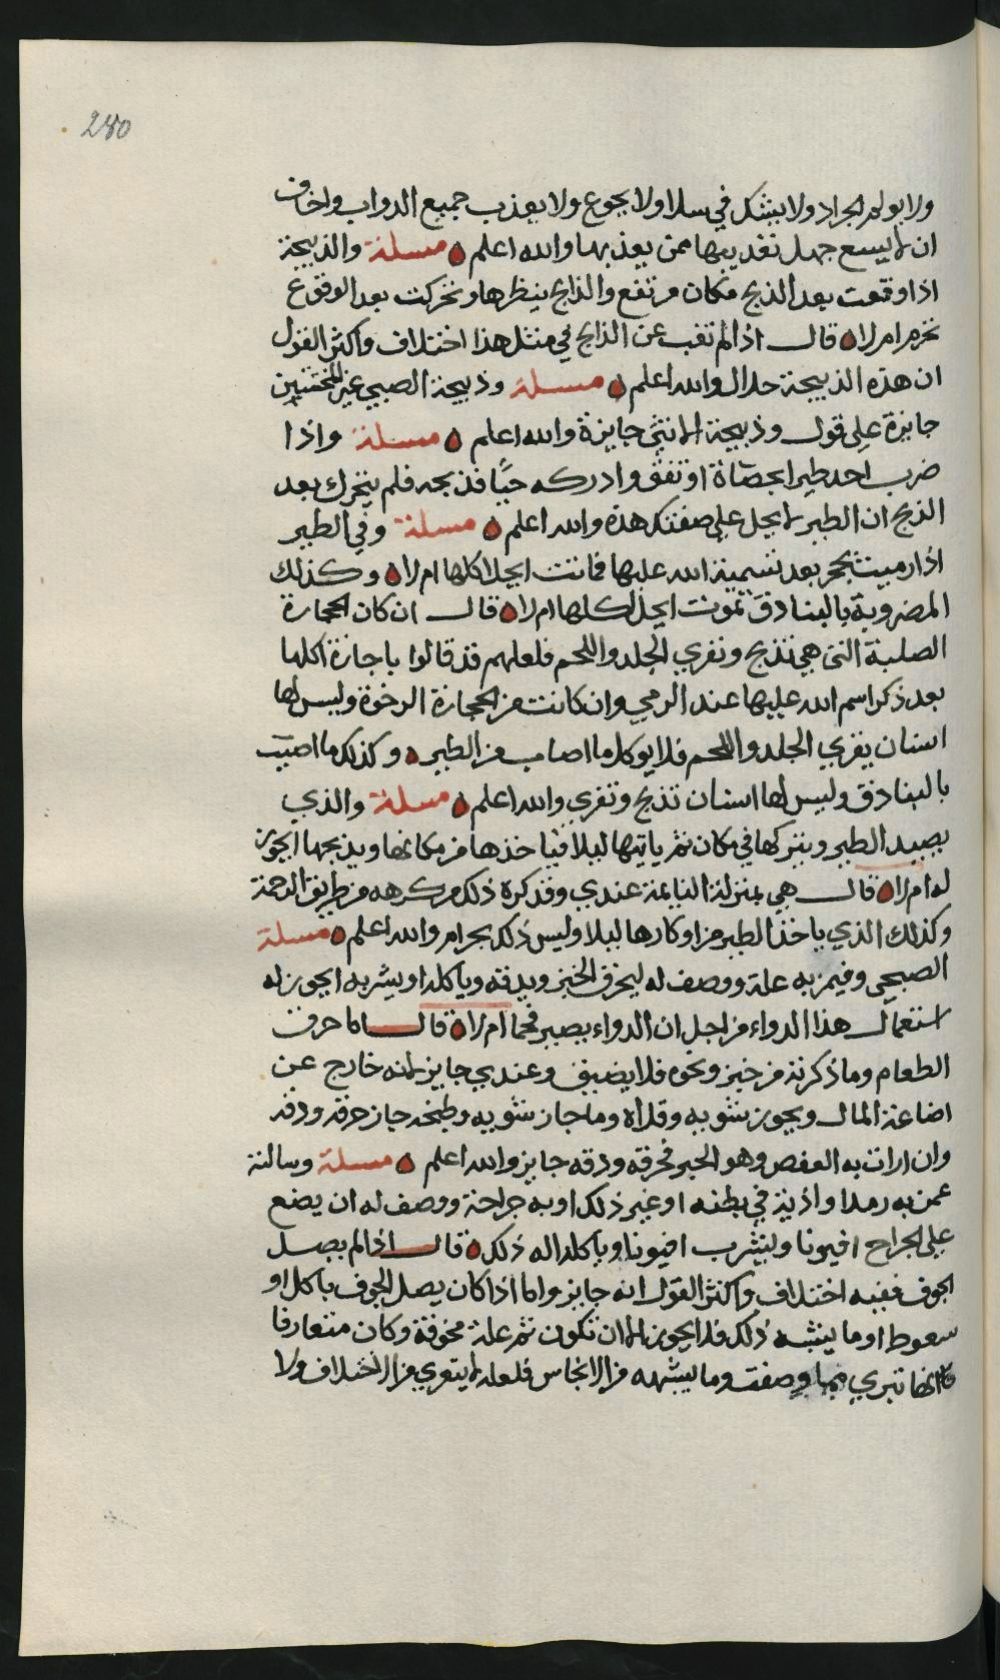 280
ولا يولم الجراد ولا يشكل في سلاولا يجوع ولا يعذب جميع الدواب واخاف
ان لا يسع جهل تعذيبها ممن يعذبها والله اعلم مسلة والذبيحة
اذا وقعت بعد الذبح مكان مرتفع والذابح ينظرها وتحركت بعد الوقوع
تحرم ام لا قال اذا لم تغب عن الذابح في مثل هذا اختلاف واكثر القول
ان هذه الذبيحة حلال والله اعلم مسلة وذبيحة الصبي غير المختتين
جايزة على قول وذبيحة الانثى جايزة والله اعلم مسلة واذا
ضرب احد طيرا بحصاة او تفق وادركه حيا فذبحه فلم يتحرك بعد
الذبح ان الطير لا يحل على صفتك هذه والله اعلم مسلة وفي الطير
اذا رميت بحجر بعد تسمية الله عليها فماتت ايحل اكلها ام لا وكذلك
المضروبة بالبنادق تموت ايحل اكلها ام لا قال ان كان الحجارة
الصلبة التي هي تذبح وتفري الجلد واللحم فلعلهم قد قالوا باجازة اكلها
بعد ذكر اسم الله عليها عند الرمي وان كانت من الحجارة الرخوة وليس لها
اسنان يفري الجلد واللحم فلا يوكل ما اصاب من الطير وكذلك ما اصيب
بالبنادق وليس لها اسنان تذبح وتفري والله اعلم مسلة والذي
يصيد الطير ويتركها في مكان ثم ياتيها ليلا فياخذها من مكانها ويذبحها ايجوز
له ام لا قال هي بمنزلة النايمة عندي وقد كره ذلك من كرهه من طريق الرحمة
وكذلك الذي ياخذ الطير من اوكارها ليلا وليس ذلك بحرام والله اعلم مسلة
الصبحي وفيمن به علة ووصف له ليحرق الخبز ويدقه وياكله او يشربه ايجوز له
استعمال هذا الدواء من اجل ان الدواء يصير فحما ام لا قال اما حرق
الطعام وما ذكرته من خبز ونحوه فلا يضيق وعندي جايز لانه خارج عن
اضاعة المال ويجوز شويه وقلاه وما جاز شويه وطبخه جاز حرقه ودقه
وان ارات به العفص وهو الحبر فحرقه ودقه جايز والله اعلم مسلة وسالته
عمن به رمدا واذية في بطنه او غير ذلك او به جراحة ووصف له ان يضع
على الجراح افيونا وليشرب افيونا وياكله اله ذلك قال اذا لم يصل
الجوف ففيه اختلاف واكثر القول انه جايز واما اذا كان يصل الجوف باكل او
سعوط او ما يشبه ذلك فلا يجوز الا ان تكون ثم علة مخوفة وكان متعارفا
انها تبري مما وصفت وما يشبهه من الانجاس فلعله لا يتعري من الاختلاف ولا